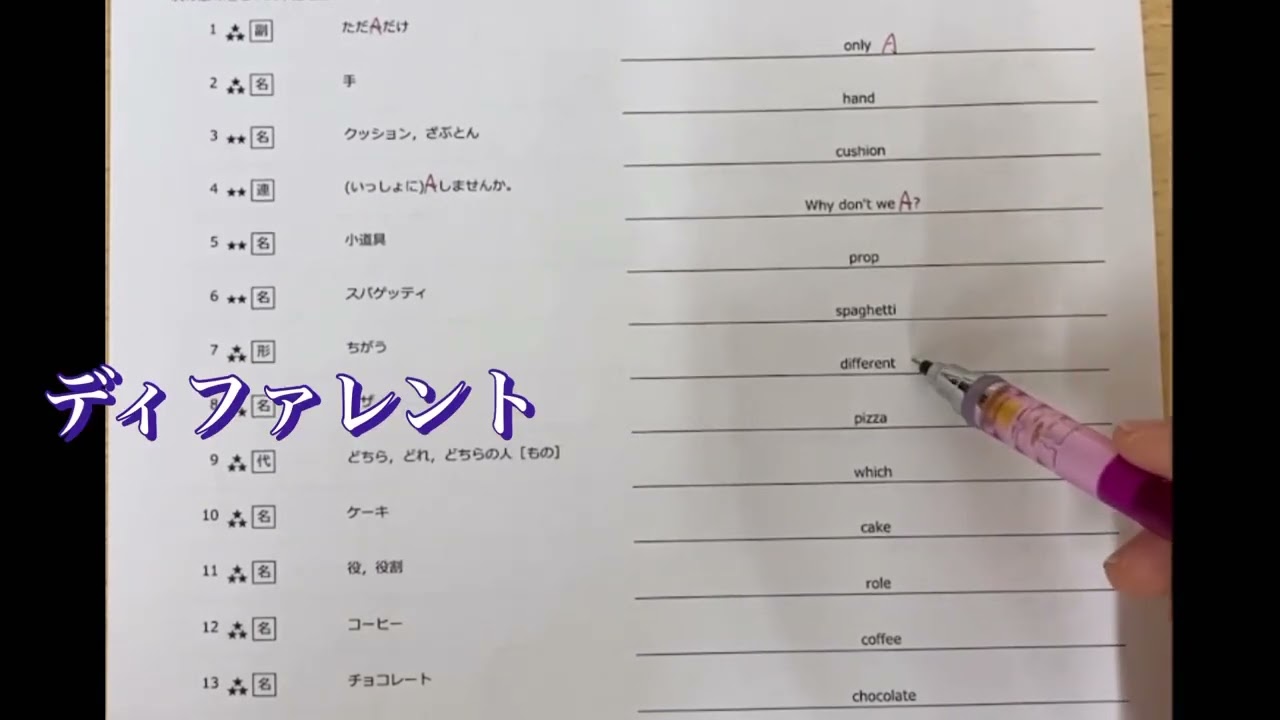 1 副 ただAだけ only A
2 名 手 hand
3 名 クッション，ざぶとん cushion
4 連 (いっしょに)Aしませんか。 Why don't we A?
5 名 小道具 prop
6 名 スパゲッティ spaghetti
7 形 ちがう different
ディファレント
8 名 ザ pizza
9 代 どちら，どれ，どちらの人［もの］ which
10 名 ケーキ cake
11 名 役，役割 role
12 名 コーヒー coffee
13 名 チョコレート chocolate